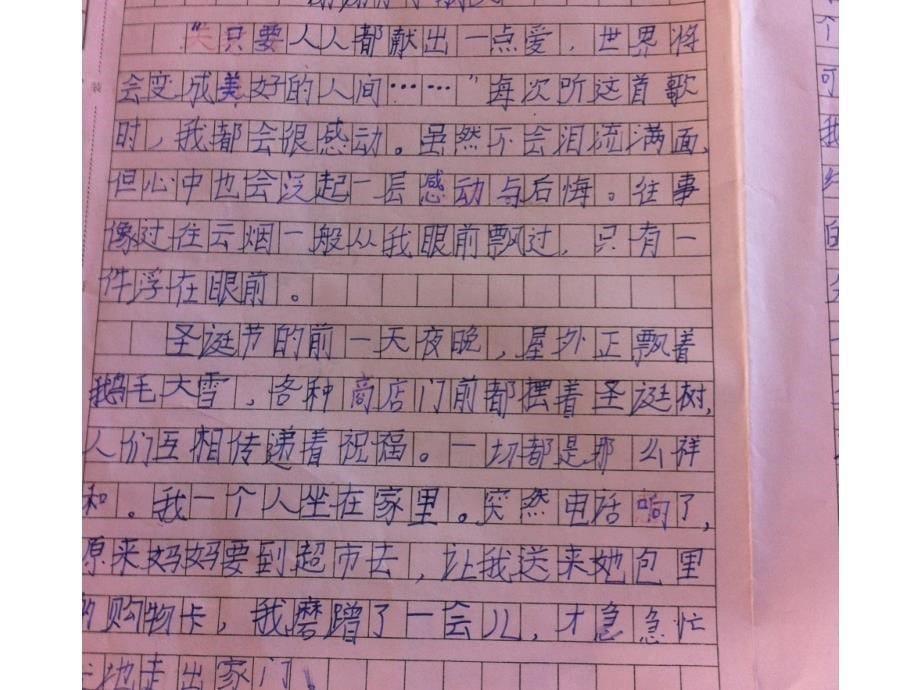 “只要人人都献出一点爱，世界将
会变成美好的人间……”每次听这首歌
时，我都会很感动。虽然不会泪流满面，
但心中也会泛起一层感动与后悔。往事
像过往云烟一般从我眼前飘过，只有一
件浮在眼前。
圣诞节的前一天夜晚，屋外正飘着
鹅毛大雪，各种商店门前都摆着圣诞树，
人们互相传递着祝福。一切都是那么祥
和。我一个人坐在家里。突然电话响了，
原来妈妈要到超市去，让我送来她包里
的购物卡，我磨蹭了一会儿，才急急忙
地走出家门。
装
个
可
我